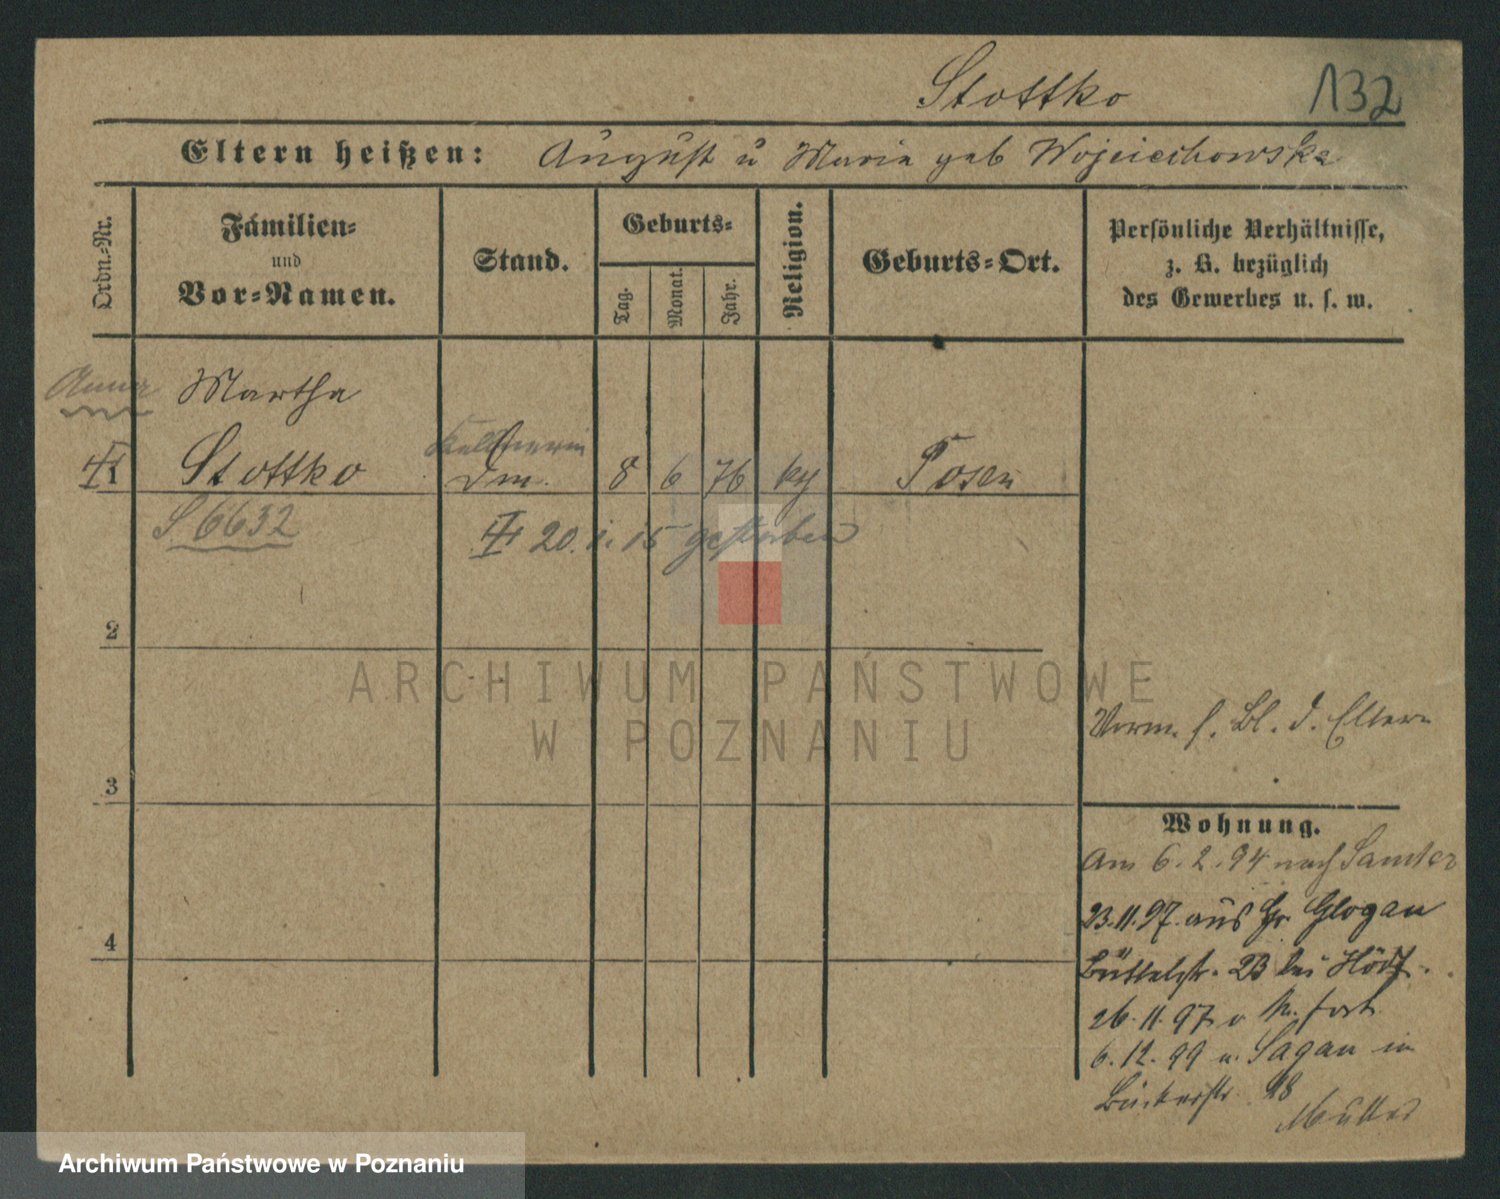 Stottko
132
Eltern heißen: August u Maria geb Wojciechowska
Ordn.-Nr.
Familien-
und
Vor-Namen.
Stand.
Geburts-
Tag.
Monat.
Jahr.
Religion.
Geburts-Ort.
Persönliche Verhältnisse,
z. B. bezüglich
des Gewerbes u. s. w.
Anna Martha
Kellnerin
Stottko Dm. 8 6 76 kg Posen
S 6632
20. 1. 15 gestorben
2
ARCHIWUM PAŃSTWOWE
W POZNANIU
Vorm. s. Bl. d. Eltern
3
Wohnung.
Am 6. 2. 94 nach Samter
23. 11. 97. aus Gr Glogau
Büttelstr. 23 bei
4
26. 11. 97 fort
6. 12. 99 u. Sagan in
18
Mutter
Archiwum Państwowe w Poznaniu